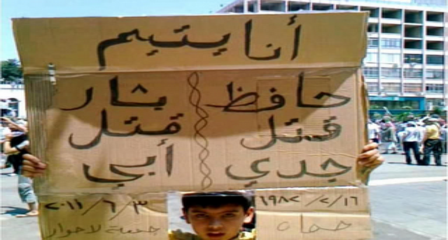 أنا يتيم
حافظ بشار
قتل قتل
جدي أبي
١٩٨٢/٢/١٦ ٢٠١١/٦/٣
حماه جمعة لا حوار